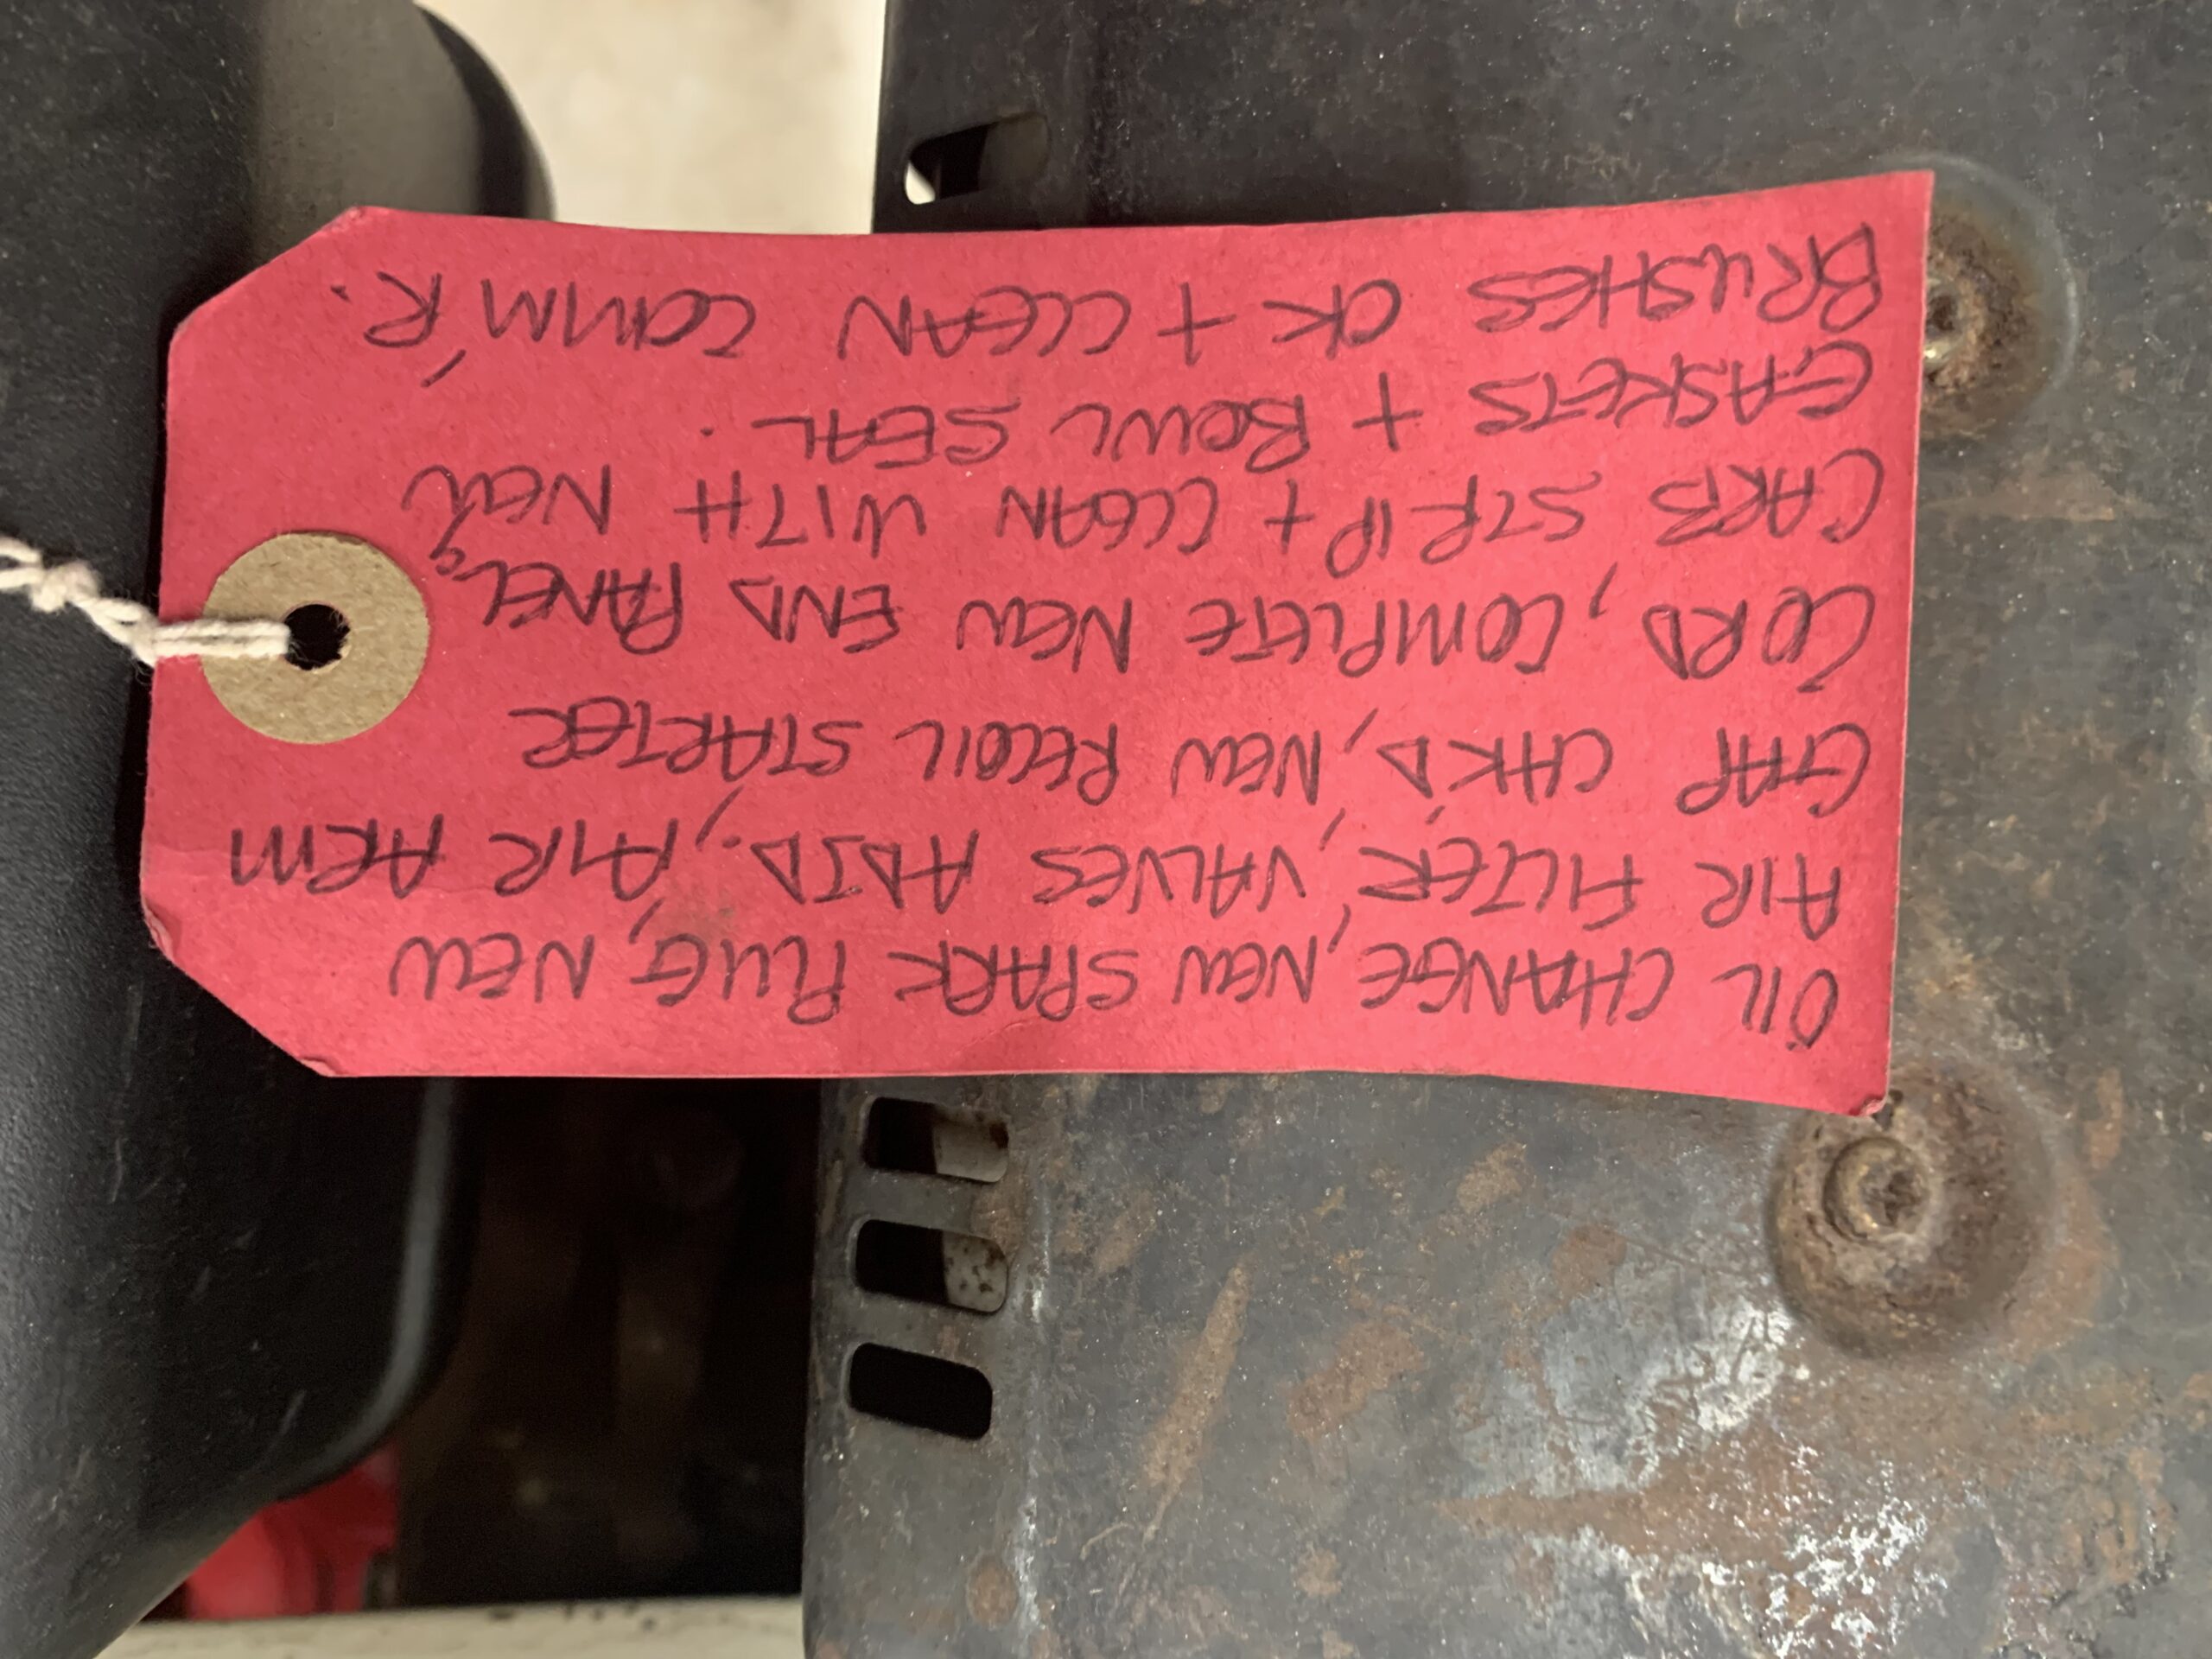 OIL CHANGE, NEW SPARK PLUG, NEW
AIR FILTER, VALVES ADJD., AIR ARM
GAP CHKD, NEW RECOIL STARTER
CORD, COMPLETE NEW END PANEL,
CARB STRIP + CLEAN WITH NEW
GASKETS + BOWL SEAL.
BRUSHES CK + CLEAN COMM'R.